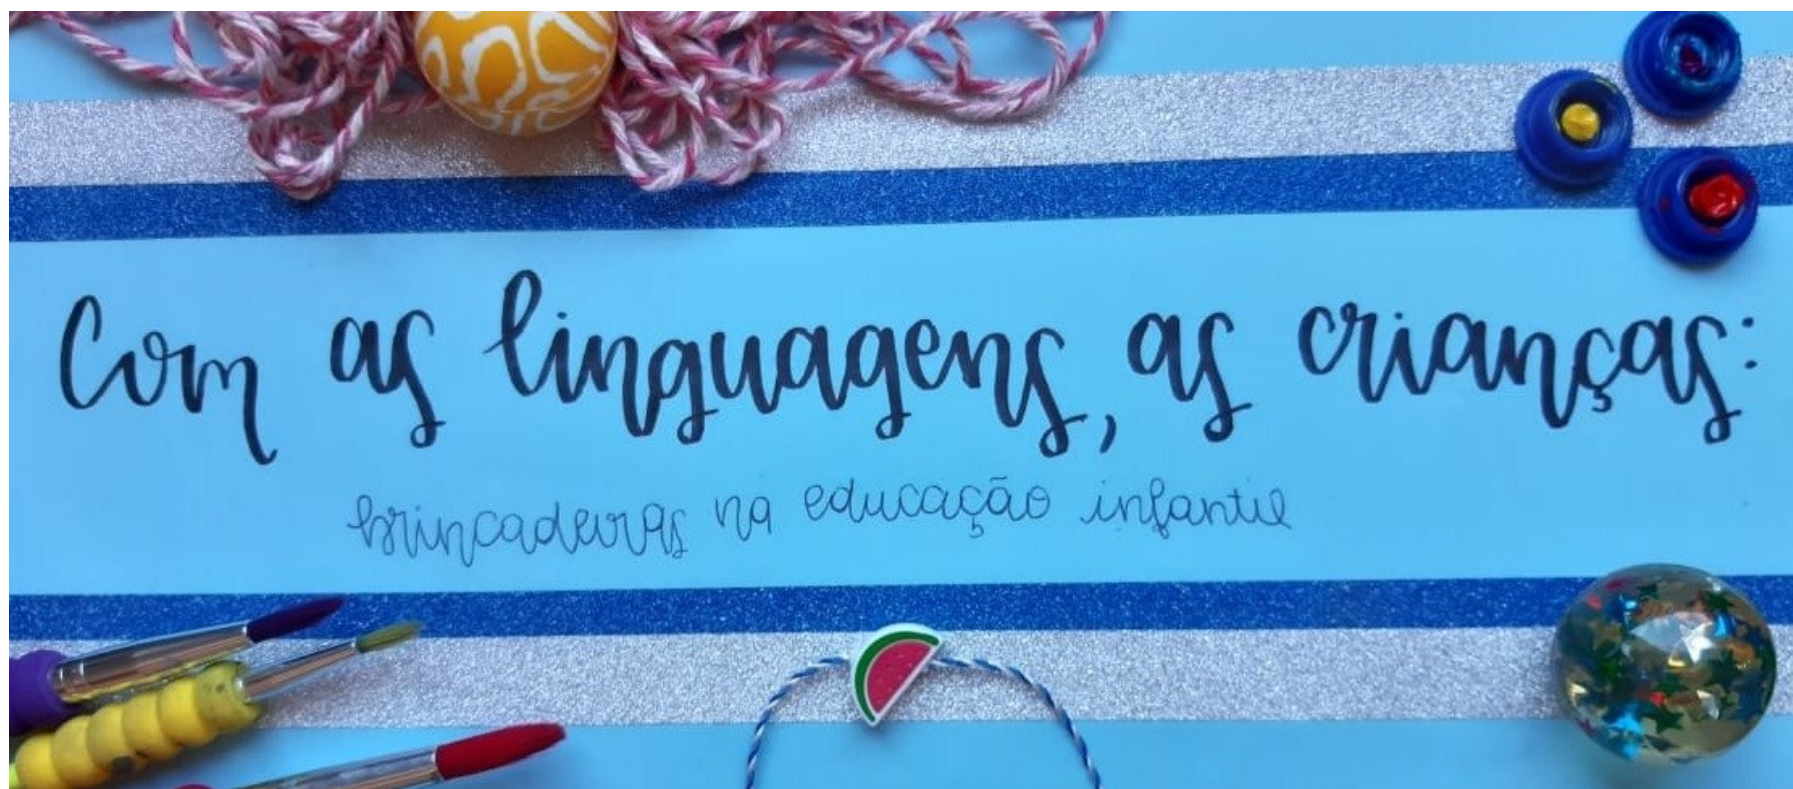 Com as linguagens, as crianças:
brincadeiras na educação infantil